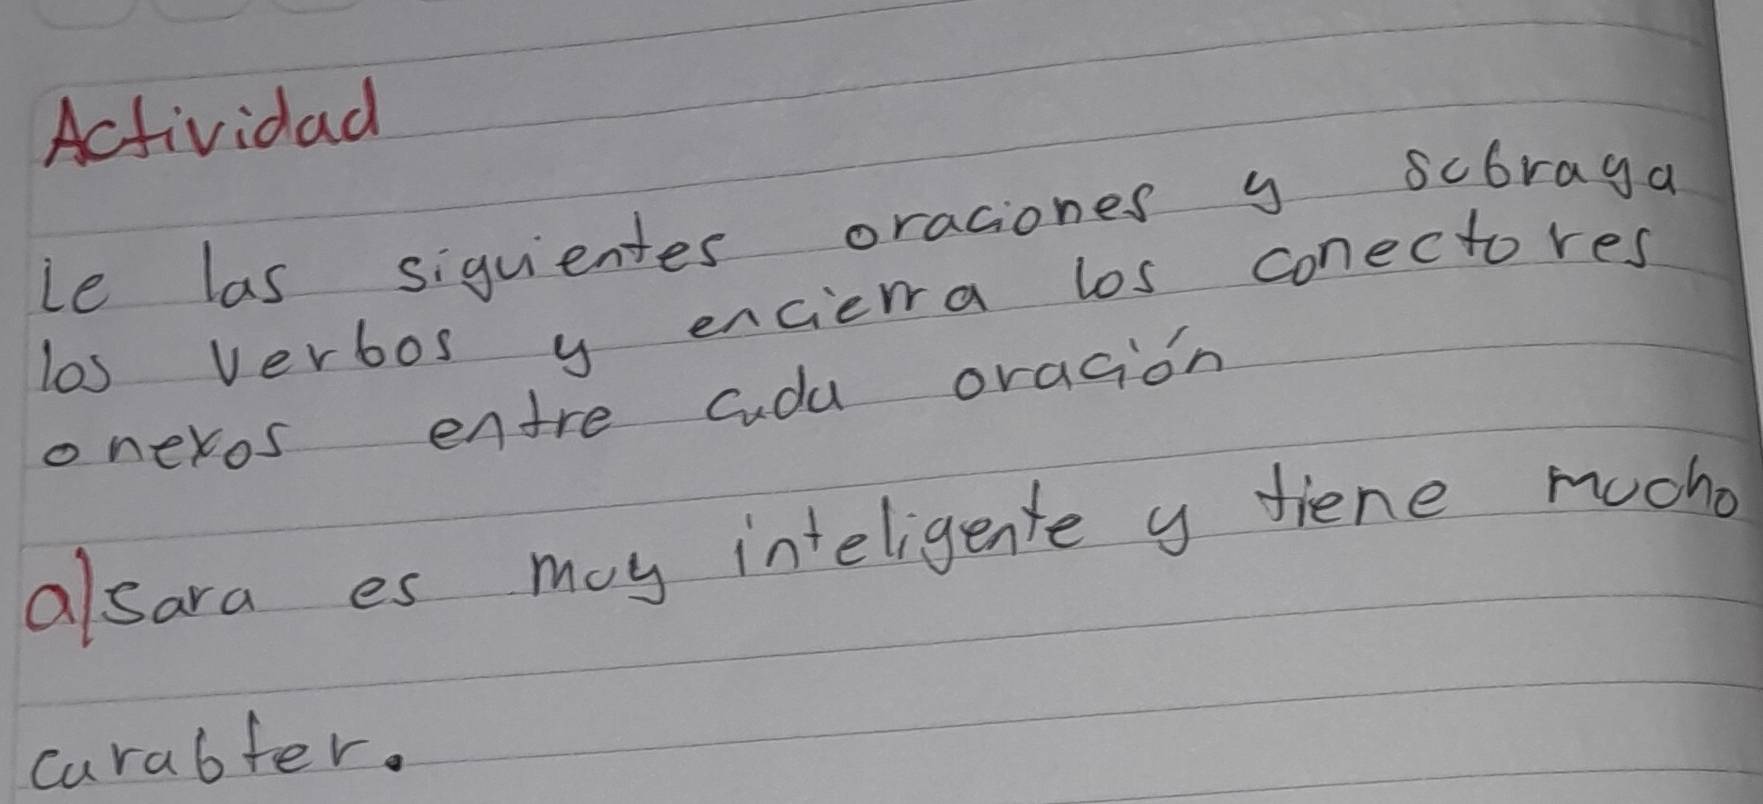 Actividad
le las siguientes oraciones y subraya
los verbos y encierra los conectores
o nexos entre cada oración
a) sara es muy inteligente y tiene mucho
carabter.